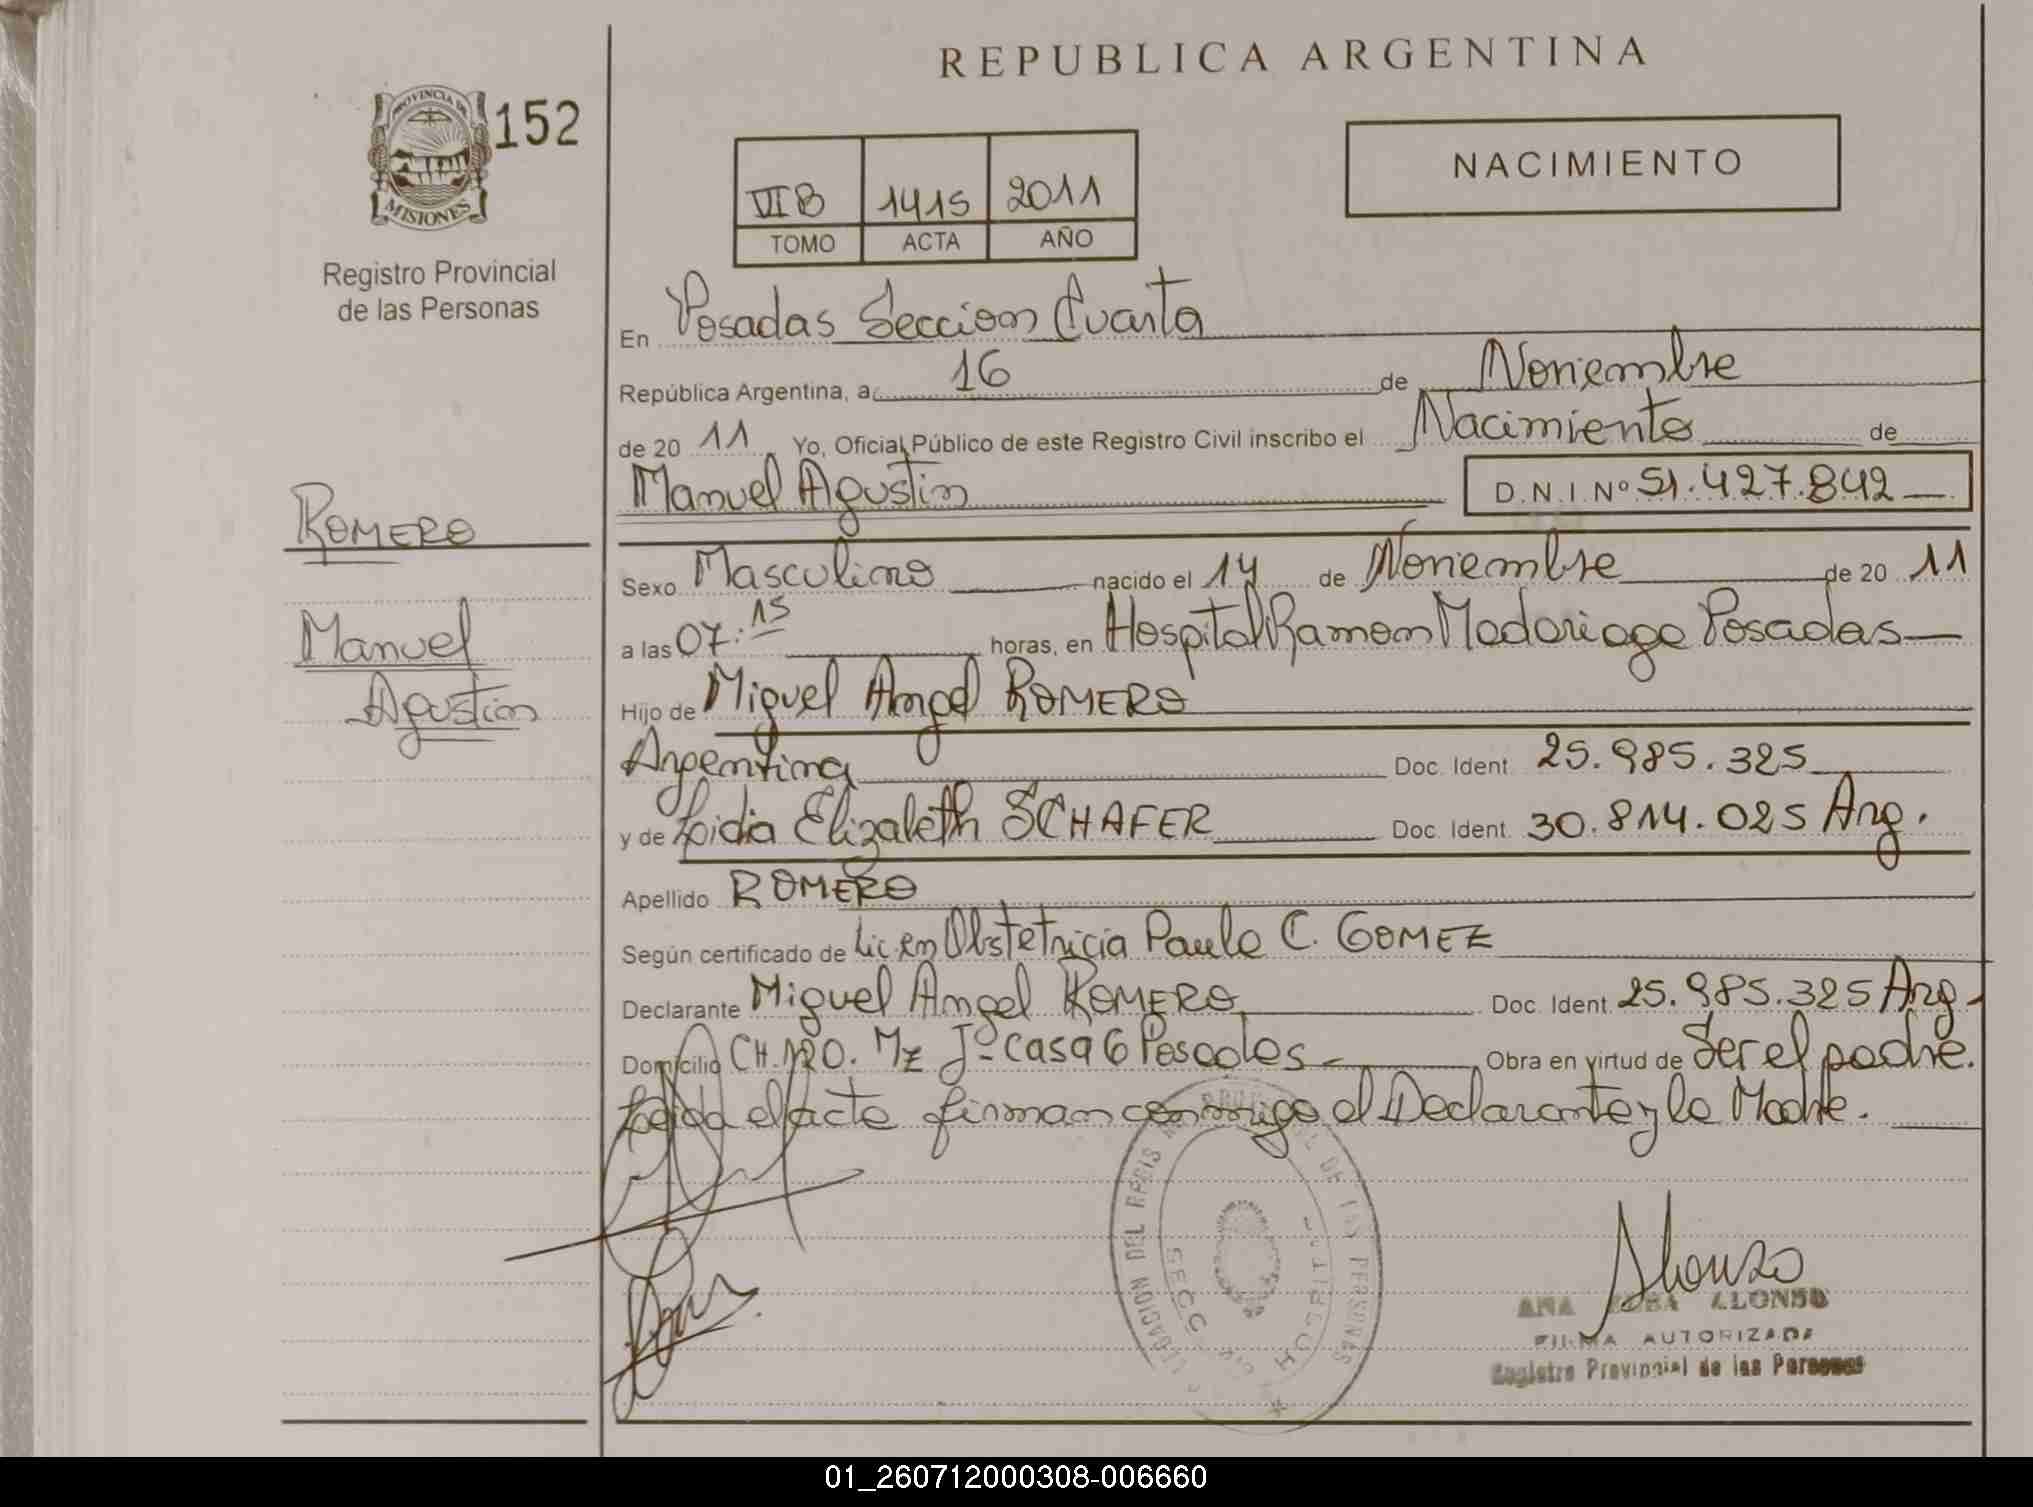 REPUBLICA ARGENTINA
PROVINCIA DE
MISIONES
152
Registro Provincial
de las Personas
VI B 1415 2011
TOMO ACTA AÑO
NACIMIENTO
En Posadas Seccion Cuarta
República Argentina, a 16 de Noviembre
de 20 11 Yo, Oficial Público de este Registro Civil inscribo el Nacimiento de
Manuel Agustin D.N.I. Nº 51.427.842
ROMERO
Manuel
Agustin
Sexo Masculino nacido el 14 de Noviembre de 20 11
a las 07:15 horas, en Hospital Ramon Madariaga Posadas
Hijo de Miguel Angel ROMERO
Argentina Doc. Ident. 25.985.325
y de Leidia Elizabeth SCHAFER Doc. Ident. 30.814.025 Arg.
Apellido ROMERO
Según certificado de Lic. en Obstetricia Paula C. GOMEZ
Declarante Miguel Angel ROMERO Doc. Ident. 25.985.325 Arg.
Domicilio CH. 120. Mz J - Casa 6 Posadas - Obra en virtud de Ser el padre.
Leida el acta firman conmigo el Declarante y la Madre.
DELEGACION DEL REGIS PROVINCIAL DE LAS PERSONAS
SECC HOSPITAL
Alonzo
ANA ALONSO
FIRMA AUTORIZADA
Registro Provincial de las Personas
01_260712000308-006660